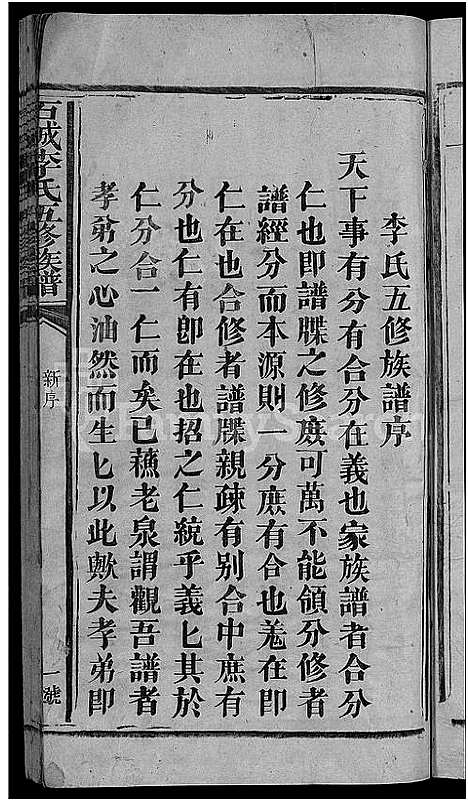 李氏五修族譜序
天下事有分有合分在義也家族譜者合分
仁也即譜牒之修庶可萬不能領分修者
譜經分而本源則一分庶有合也羗在即
仁在也合修者譜牒親疎有别合中庶有
分也仁有卽在也招之仁統乎義匕其於
仁分合一仁而矣已蘓老泉謂觀吾譜者
孝弟之心油然而生匕以此歟夫孝弟即
石城李氏五修族譜
新序
一號